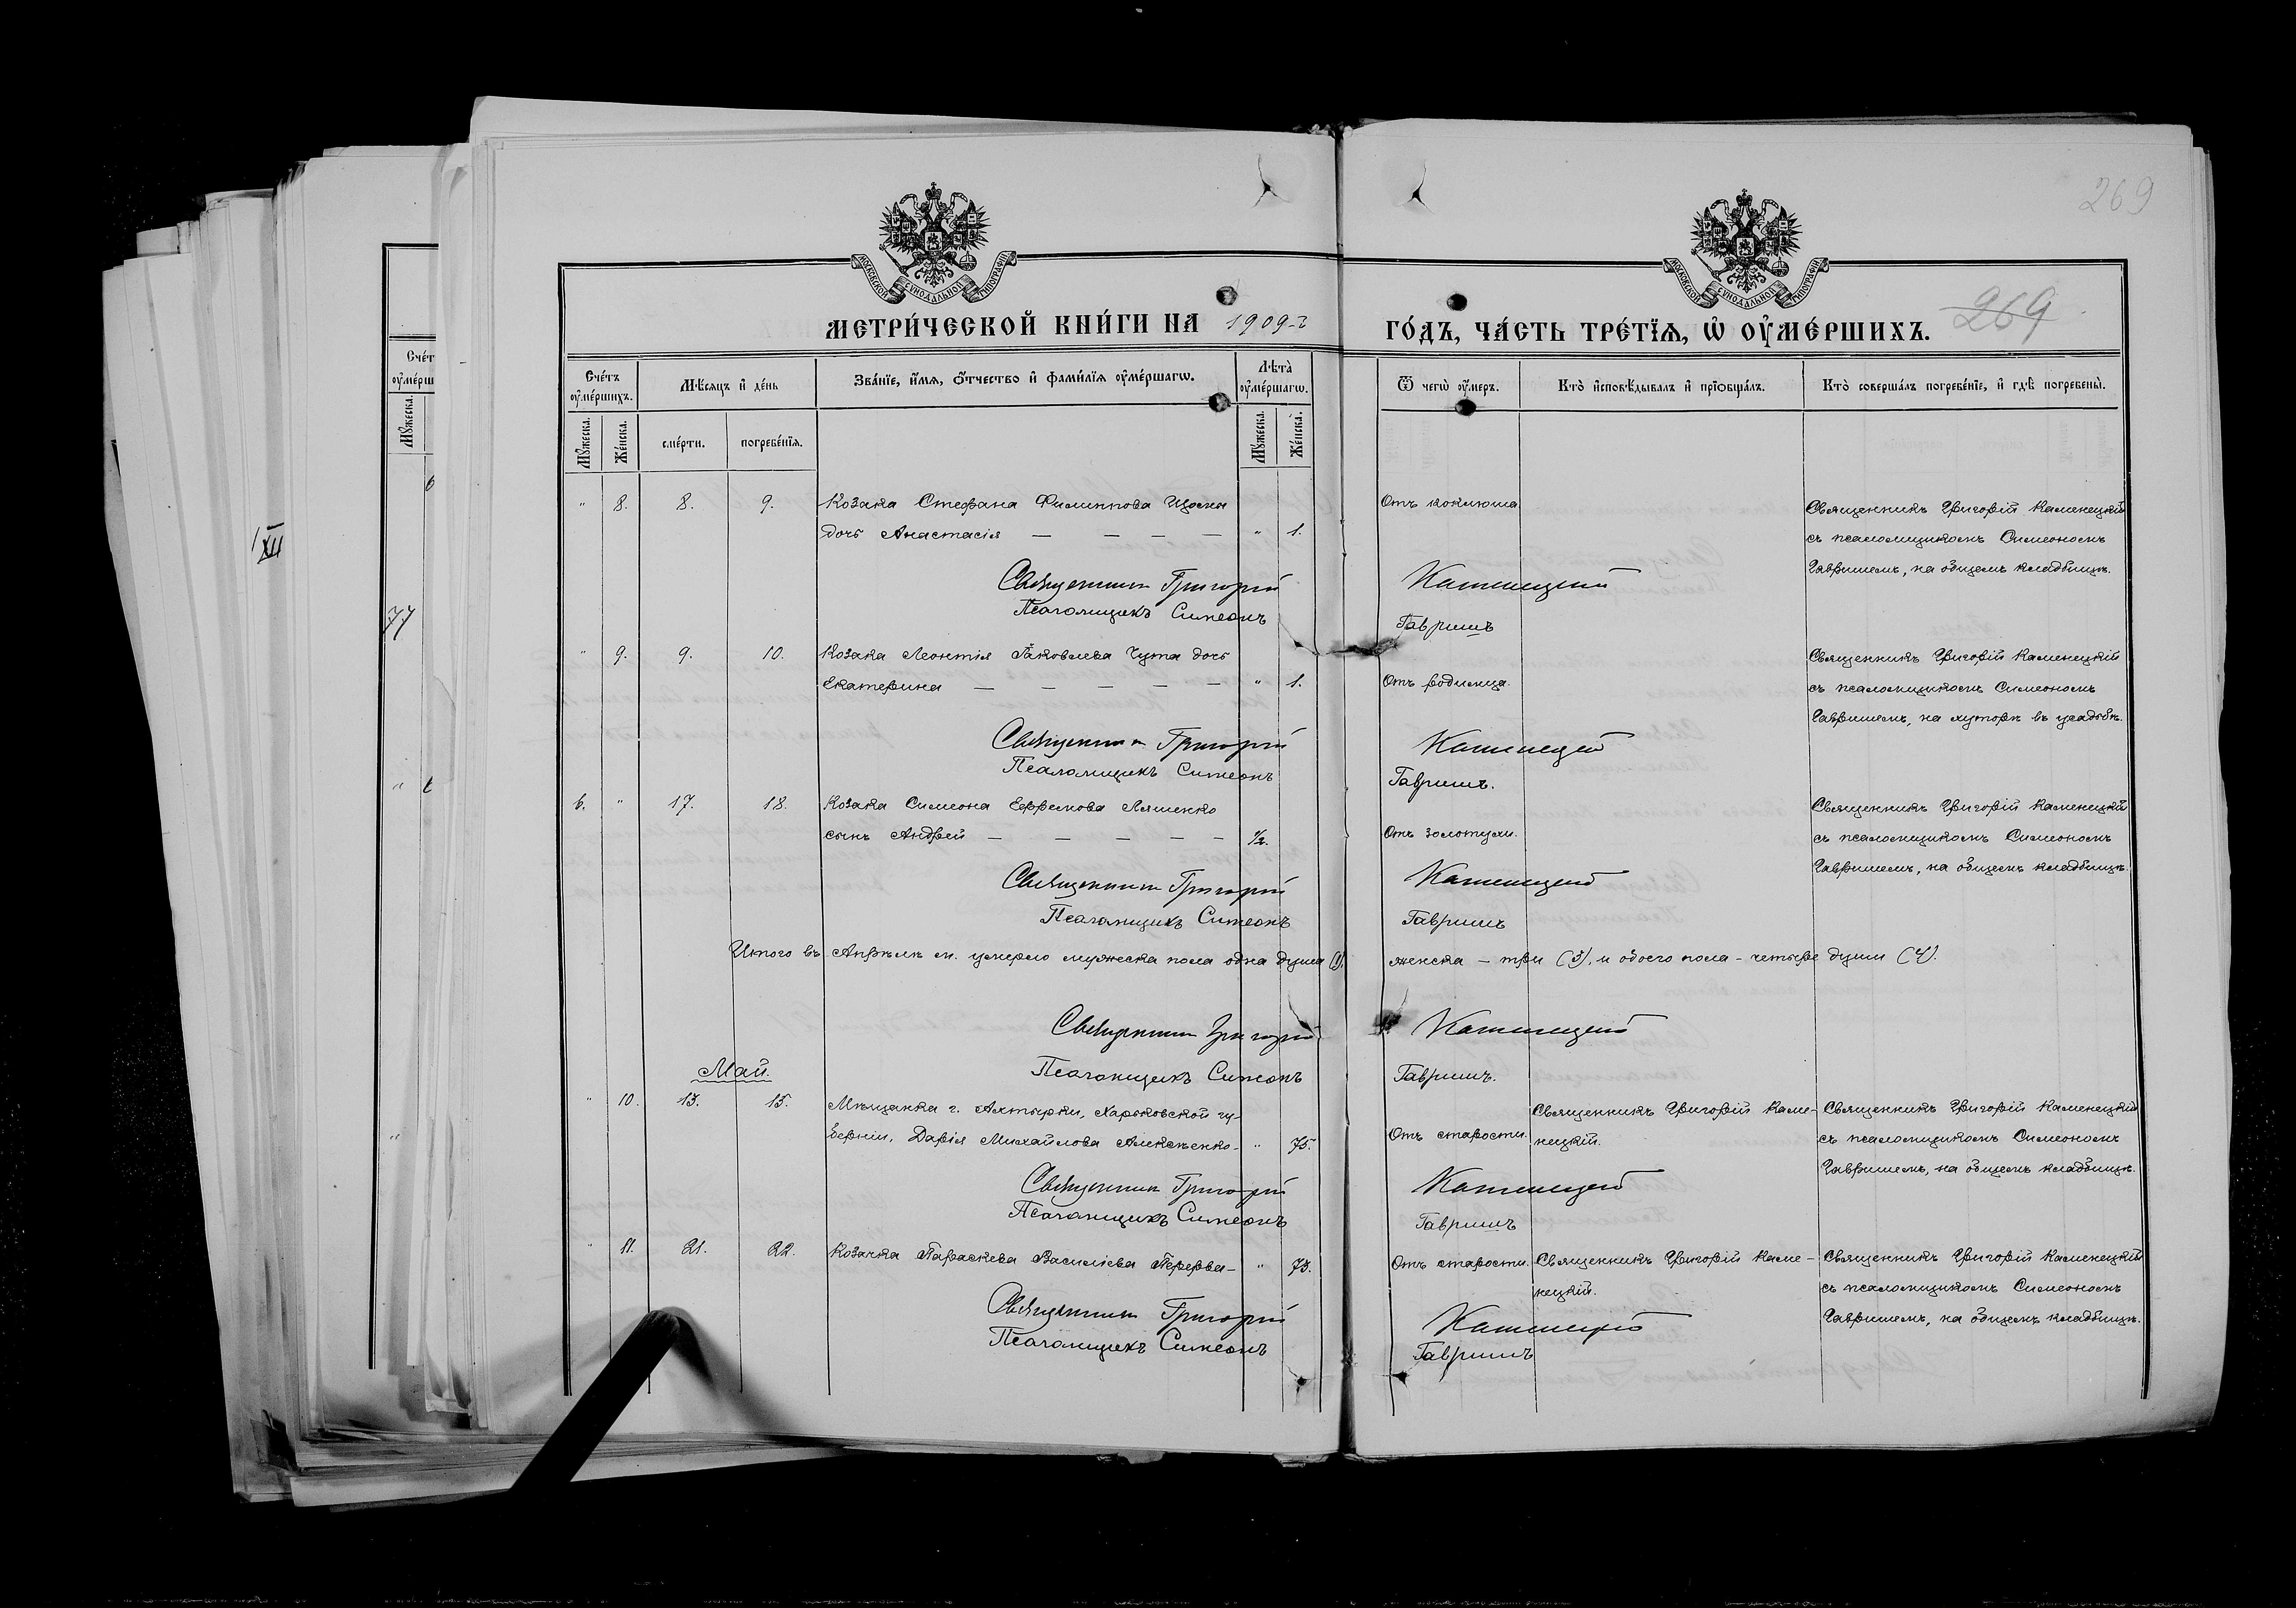 269
МОСКОВСКОЙ СѴНОДАЛЬНОЙ ТИПОГРАФІИ
МОСКОВСКОЙ СѴНОДАЛЬНОЙ ТИПОГРАФІИ
МЕТРИ́ЧЕСКОЙ КНИ́ГИ НА 1909-й
ГО́ДЪ, ЧА́СТЬ ТРЕ́ТЇѦ, Ѡ҆ ОУ҆МЕ́РШИХЪ.
269
Сче́тъ оу҆ме́ршихъ.
Мѣ́сяцъ и҆ де́нь
Зва́нїе, и҆́мѧ, ѻ҆́тчество и҆ фами́лїѧ оу҆ме́ршагѡ.
Лѣта̀ оу҆ме́ршагѡ.
Ѿ чегѡ̀ оу҆́меръ.
Кто̀ и҆сповѣ́дывалъ и҆ прїѡбща́лъ.
Кто̀ соверша́лъ погребе́нїе, и҆ гдѣ̀ погребены̀.
Мꙋ́жеска.
Же́нска.
сме́рти.
погребе́нїѧ.
Мꙋ́жеска.
Же́нска.
" 8. 8. 9. Козака Стефана Филиппова
дочь Анастасія — — — — " 1.
Отъ коклюша
Священникъ Григорій Каменецкій
съ псаломщикомъ Симеономъ
Гавришемъ, на общемъ кладбищѣ.
Священникъ Григорій Каменецкій
Псаломщикъ Симеонъ Гавришъ
" 9. 9. 10. Козака Леонтія Яковлева Чута дочь
Екатерина — — — — — " 1.
Отъ родимца.
Священникъ Григорій Каменецкій
съ псаломщикомъ Симеономъ
Гавришемъ, на хуторѣ въ усадьбѣ.
Священникъ Григорій Каменецкій
Псаломщикъ Симеонъ Гавришъ.
6. " 17. 18. Козака Симеона Ефремова Ляшенко
сынъ Андрей — — — — — ½.
Отъ золотухи.
Священникъ Григорій Каменецкій
съ псаломщикомъ Симеономъ
Гавришемъ, на общемъ кладбищѣ.
Священникъ Григорій Каменецкій
Псаломщикъ Симеонъ Гавришъ
Итого въ Апрѣлѣ м. умерло мужеска пола одна душа (1). женска — три (3), и обоего пола — четыре души (4).
Священникъ Григорій Каменецкій
Псаломщикъ Симеонъ Гавришъ.
Май.
" 10. 13. 15. Мѣщанка г. Ахтырки, Харьковской гу-
берніи, Дарія Михайлова Алексѣенко - " 75.
Отъ старости.
Священникъ Григорій Каме-
нецкій.
Священникъ Григорій Каменецкій
съ псаломщикомъ Симеономъ
Гавришемъ, на общемъ кладбищѣ.
Священникъ Григорій Каменецкій
Псаломщикъ Симеонъ Гавришъ
" 11. 21. 22. Козачка Параскева Василіева Перерва — " 73.
Отъ старости.
Священникъ Григорій Каме-
нецкій.
Священникъ Григорій Каменецкій
съ псаломщикомъ Симеономъ
Гавришемъ, на общемъ кладбищѣ.
Священникъ Григорій Каменецкій
Псаломщикъ Симеонъ Гавришъ